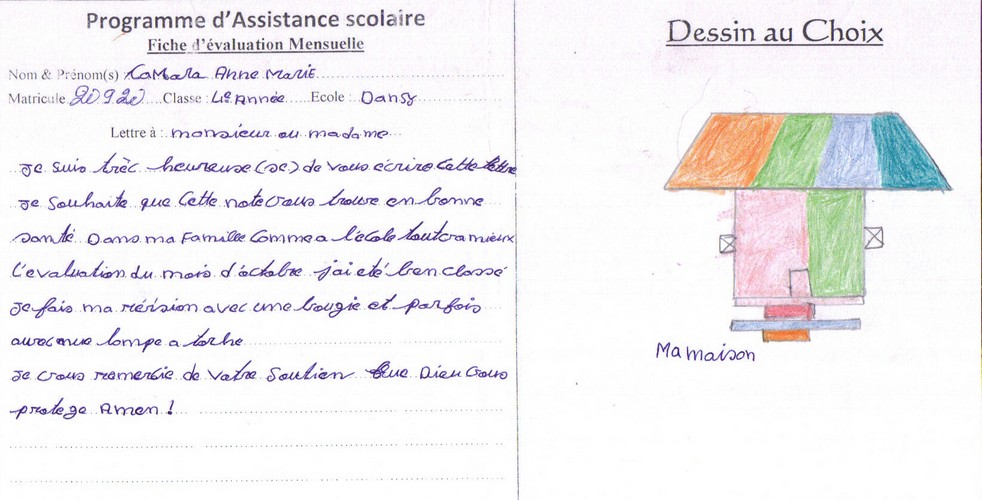 Programme d'Assistance scolaire
Fiche d'évaluation Mensuelle
Nom & Prénom(s) : CaMara Anne Marie
Matricule 20920 Classe : 4e Année Ecole : Dansy
Lettre à : monsieur ou madame
Je suis trèc heureuse (se) de vous écrire cette lettre
Je souhaite que cette note vous trouve en bonne
santé. Dans ma Famille comme a l'école tout va mieux
l'evaluation du mois d'octobre j'ai eté bien classé
Je fais ma révision avec une bougie et parfois
avec une lampe a torhe
Je vous remercie de votre soutien que Dieu vous
protege Amen !
Dessin au Choix
Ma maison